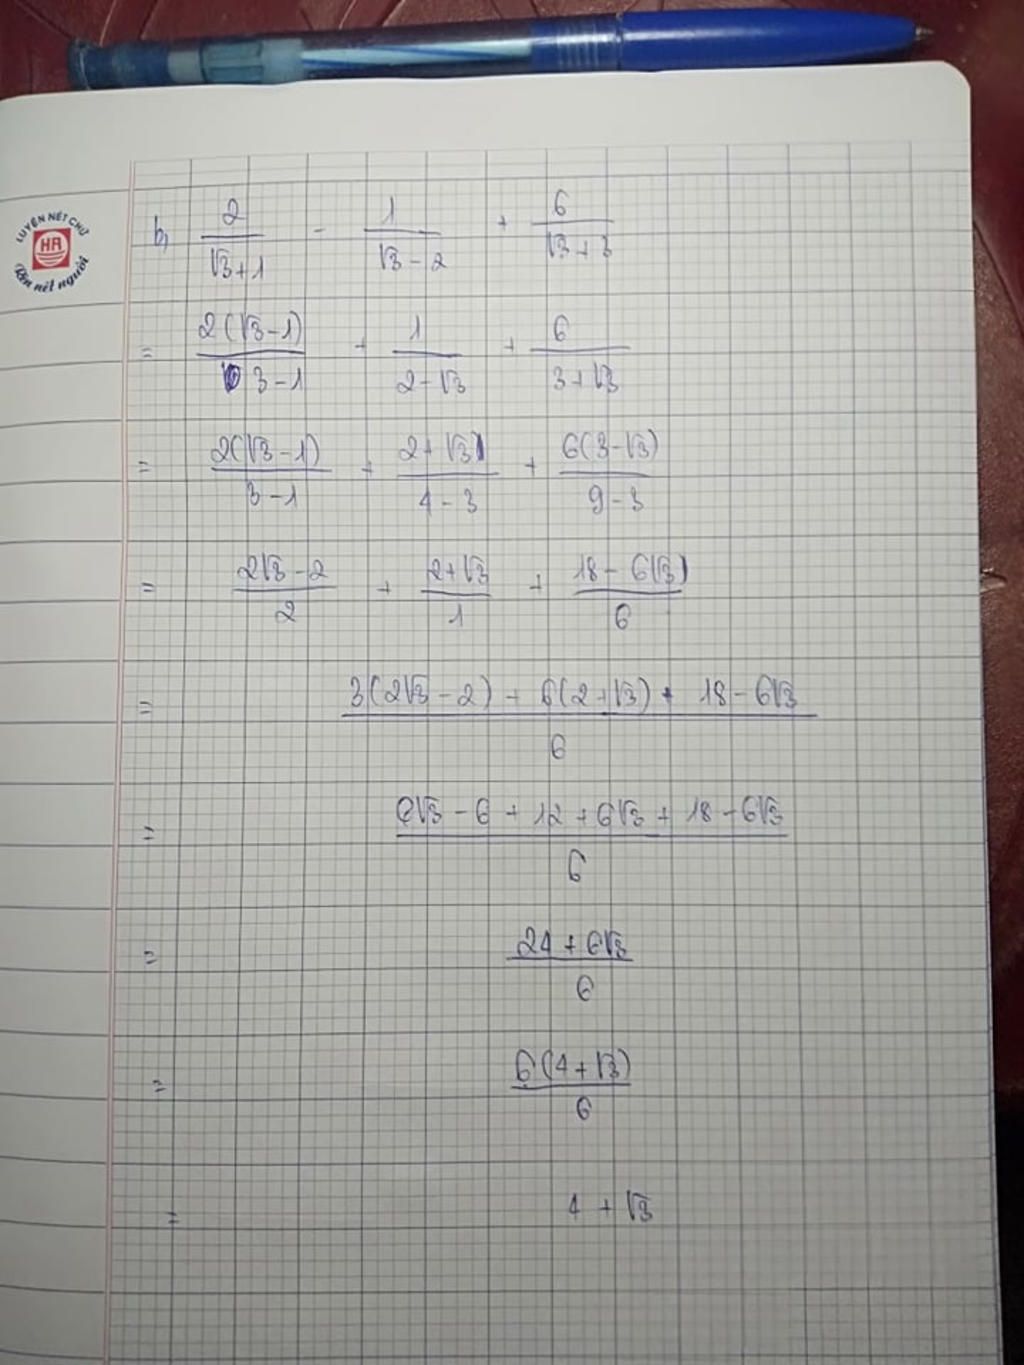 LUYỆN NÉT CHỮ
HA
Rèn nét người
b, 2/(√3+1) - 1/(√3-2) + 6/(√3+3)
= 2(√3-1)/(3-1) + 1/(2-√3) + 6/(3+√3)
= 2(√3-1)/(3-1) + (2+√3)/(4-3) + 6(3-√3)/(9-3)
= (2√3-2)/2 + (2+√3)/1 + (18-6√3)/6
= (3(2√3-2) + 6(2+√3) + 18-6√3)/6
= (6√3-6+12+6√3+18-6√3)/6
= (24+6√3)/6
= 6(4+√3)/6
= 4+√3